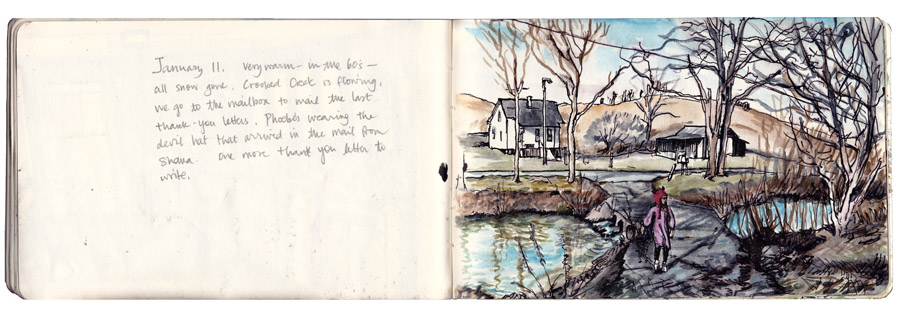 January 11. Very warm - in the 60's -
all snow gone. Crooked Creek is flowing,
we go to the mailbox to mail the last
thank-you letters. Phoebe's wearing the
devil hat that arrived in the mail from
Shana. one more thank you letter to
write.